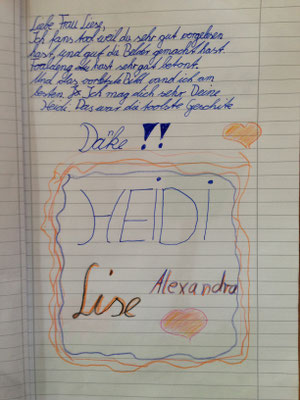 Liebe Frau Liese,
Ich fans tol weil du sehr gut vorgelesen
hast und gut di Bilder gemacht hast.
du hast sehr gut betont.
Und das Bild vand ich am
besten. Ich mag dich sehr Deine
Heidi. Das war di toolste Geschite
Dake !!
HEIDI
Lise Alexandra